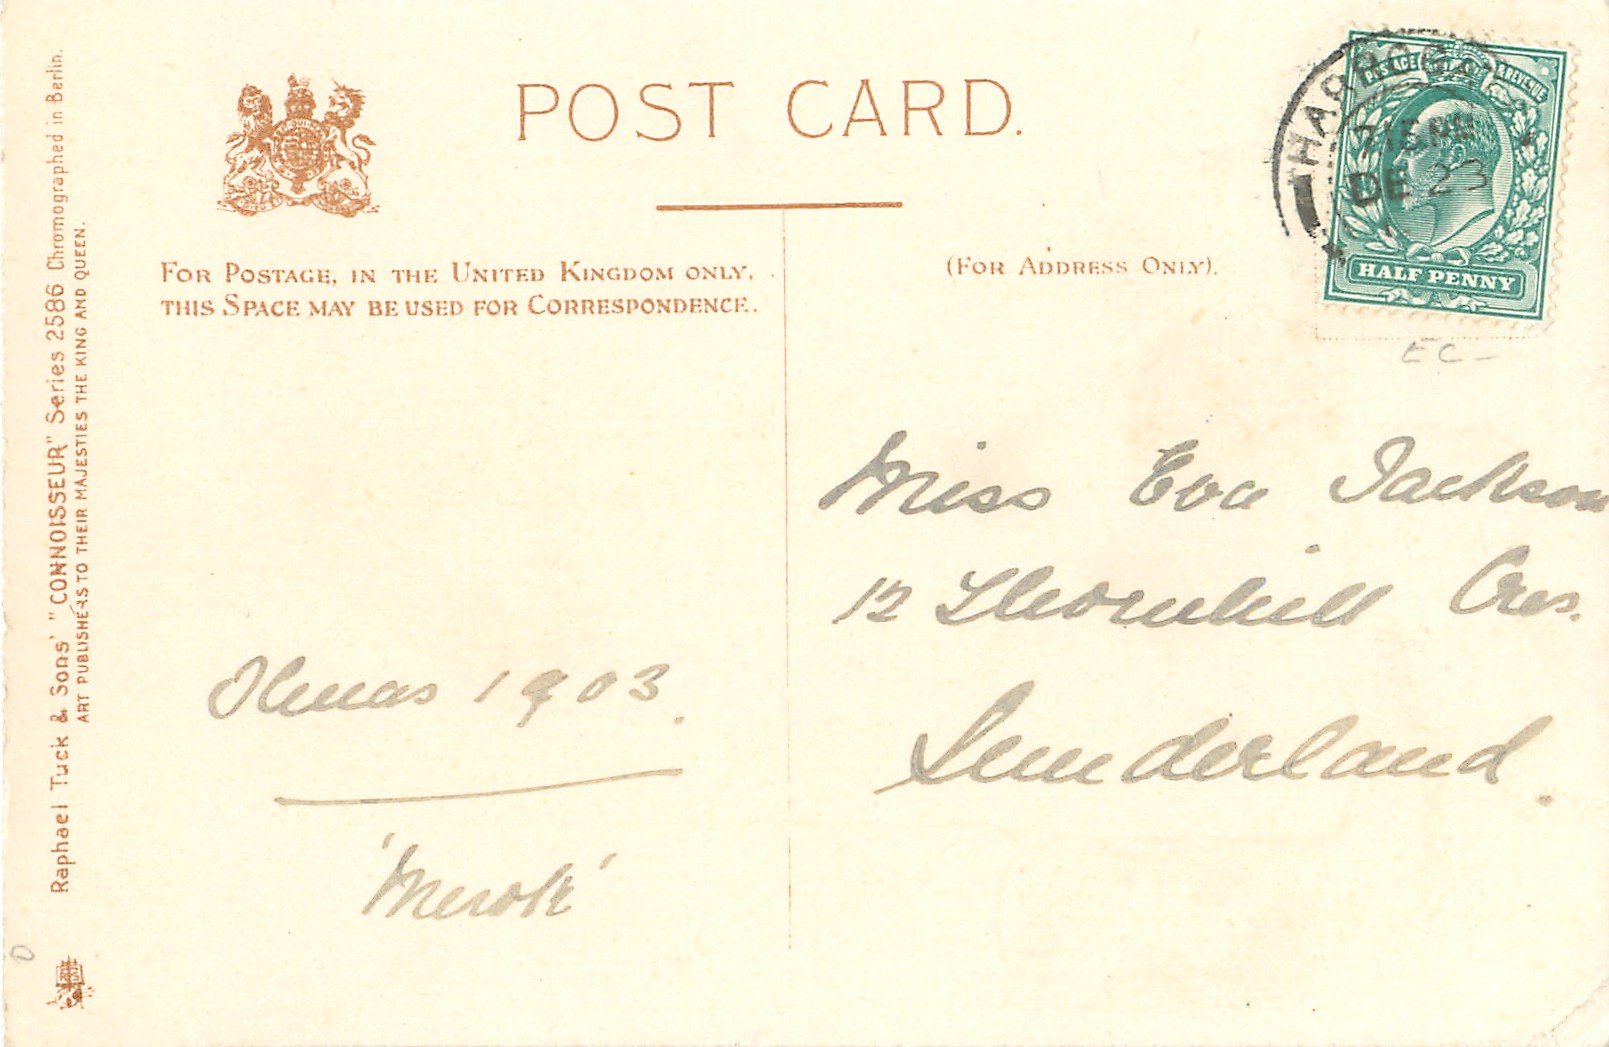 POST CARD.
FOR POSTAGE, IN THE UNITED KINGDOM ONLY,
THIS SPACE MAY BE USED FOR CORRESPONDENCE.
(FOR ADDRESS ONLY).
POSTAGE & REVENUE
HALF PENNY
HARROGATE
7 15 PM
DE 23
EC-
Miss Eva Jackson
12 Thornhill Cres.
Sunderland.
Xmas 1903.
'Merok'
Raphael Tuck & Sons' "CONNOISSEUR" Series 2586 Chromographed in Berlin.
ART PUBLISHERS TO THEIR MAJESTIES THE KING AND QUEEN.